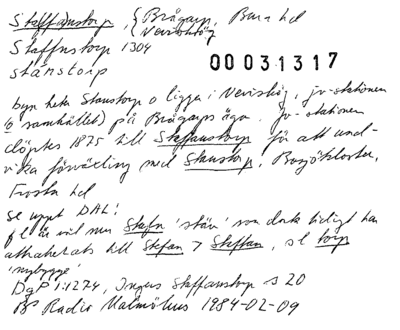 Staffanstorp, { Brågarp, Bara hd
Nevishög
Staffnstorp 1304
00031317
stånstorp
byn heta Stanstorp o ligga i Nevishög, jv-stationen
(o samhället) på Brågarps äga. Jv-stationen
döptes 1875 till Staffanstorp för att und-
vika förväxling med Stanstorp, Bosjökloster,
Frosta hd
Se uppt DAL!
fl är väl mer Stafn 'stäv' som dock tidigt har
attraherats till Stefan > Staffan, sl torp
'nybygge'
DgP 1:1274, Ingers Staffanstorp s 20
BP Radio Malmöhus 1984-02-09